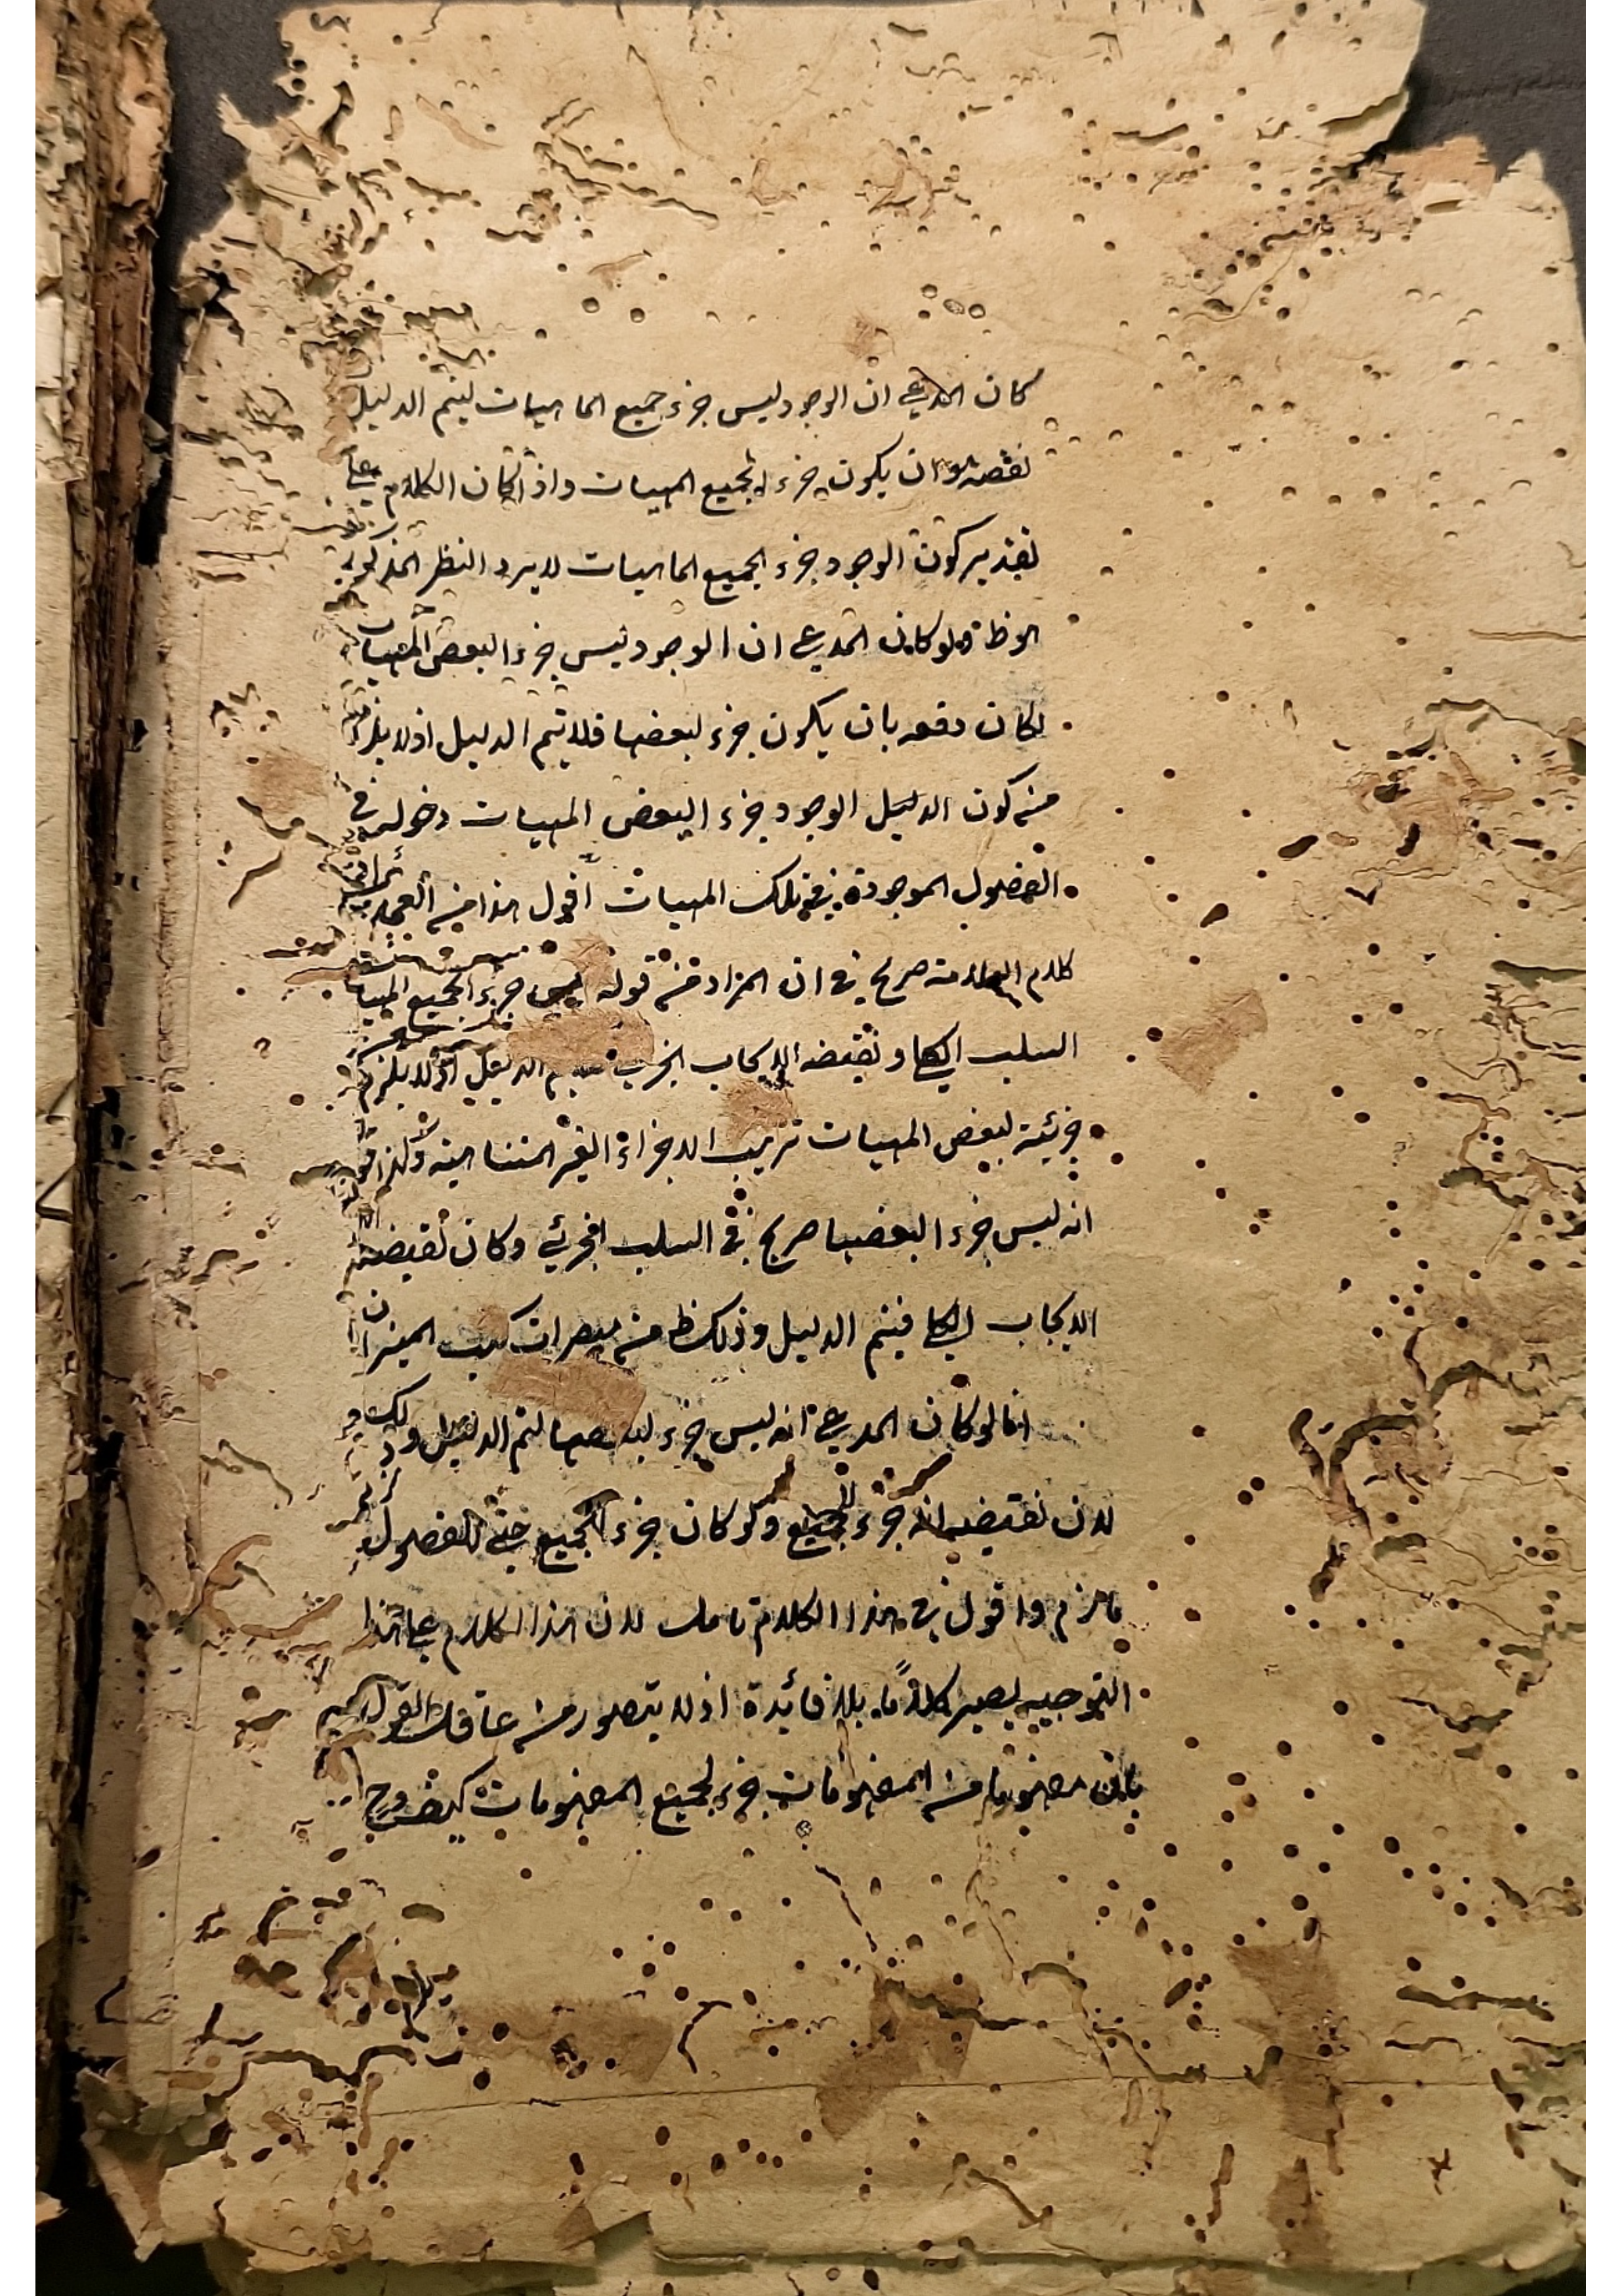 كان المدعي ان الوجود ليس جزء جميع الماهيات ليتم الدليل
نقضه وان يكون جزء لجميع المهيات واذا كان الكلام على
تقدير كون الوجود جزء لجميع الماهيات لا يرد النظر المذكور
ولو كان المدعي ان الوجود ليس جزء البعض المهيات
لكان دفعه بان يكون جزء لبعضها فلا يتم الدليل اذ لا يلزم
من كون الدليل الوجود جزء البعض المهيات دخوله في
الفصول الموجودة في تلك المهيات اقول هذا من العجب
كلام العلامة صريح في ان المراد من قوله ليس جزء لجميع المهيات
السلب الكلي ونقيضه الايجاب الجزئي الدليل اذ لا يلزم
جزئية لبعض المهيات ترتيب الاجزاء الغير المتناهية ولذا قوله
انه ليس جزء البعضها صريح في السلب الجزئي وكان نقيضه
الايجاب الكلي فيتم الدليل وذلك ظ من كتب الميزان
انا لو كان المدعي انه ليس جزء لبعضها لتم الدليل وذلك
لان نقيضه انه جزء لجميع ولو كان جزء لجميع حتى للفصول
ما لزم واقول في هذا الكلام تامل لان هذا الكلام على هذا
التوجيه يصير كلاما بلا فائدة اذ لا يتصور من عاقل القول
بان مفهوما من المفهومات جزء لجميع المفهومات كيف